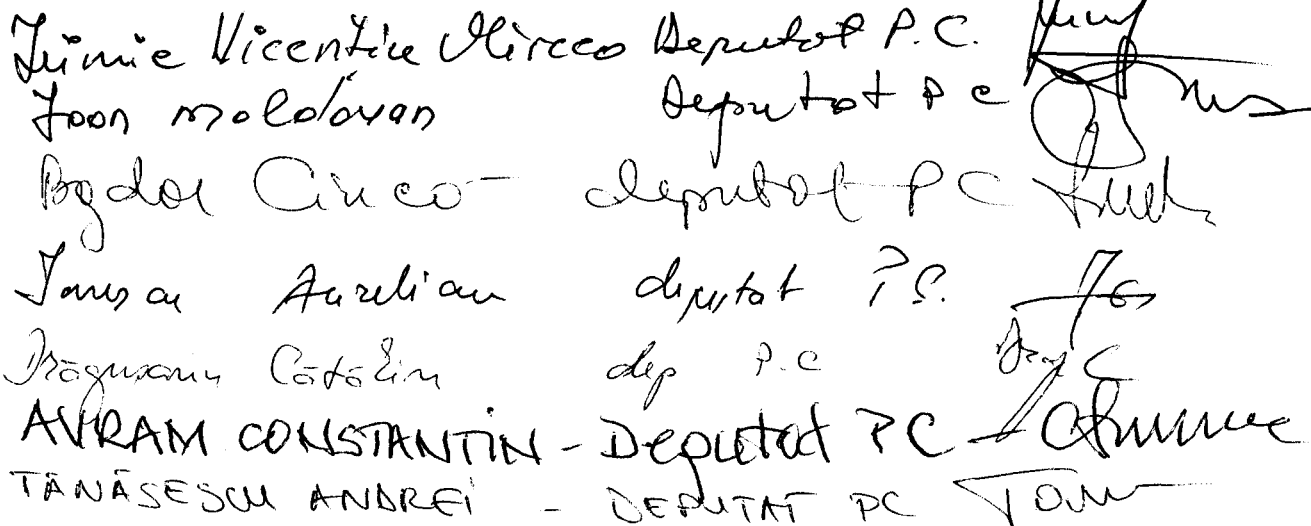 Irimie Vicentiu Mircea Deputat P.C.
Ioan Moldovan Deputat PC
Bogdan Ciucă - deputat PC
Ionescu Aurelian deputat P.C.
Drăgușanu Cătălin dep P.C
AVRAM CONSTANTIN - Deputat PC -
TĂNĂSESCU ANDREI - DEPUTAT PC